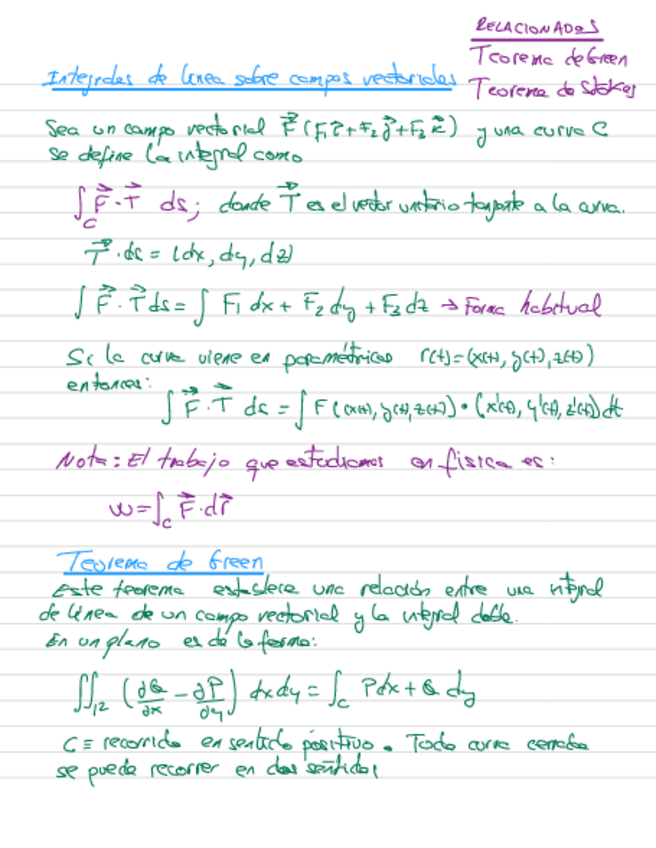 RELACIONADOS
Teorema de Green
Teorema de Stokes
Integrales de línea sobre campos vectoriales
Sea un campo vectorial F⃗ (F₁i⃗+F₂j⃗+F₃k⃗) y una curva C
se define la integral como
∫_C F⃗·T⃗ ds; donde T⃗ es el vector unitario tangente a la curva.
T⃗·ds = (dx, dy, dz)
∫ F⃗·T⃗ ds = ∫ F₁ dx + F₂ dy + F₃ dz → Forma habitual
Si la curva viene en paramétricas r(t)=(x(t), y(t), z(t))
entonces:
∫ F⃗·T⃗ ds = ∫ F(x(t), y(t), z(t)) • (x'(t), y'(t), z'(t)) dt
Nota: El trabajo que estudiamos en física es:
w = ∫_C F⃗·dr⃗
Teorema de Green
Este teorema establece una relación entre una integral
de línea de un campo vectorial y la integral doble.
En un plano es de la forma:
∬ (∂Q/∂x - ∂P/∂y) dxdy = ∫_C Pdx + Q dy
C ≡ recorrido en sentido positivo. Toda curva cerrada
se puede recorrer en dos sentidos